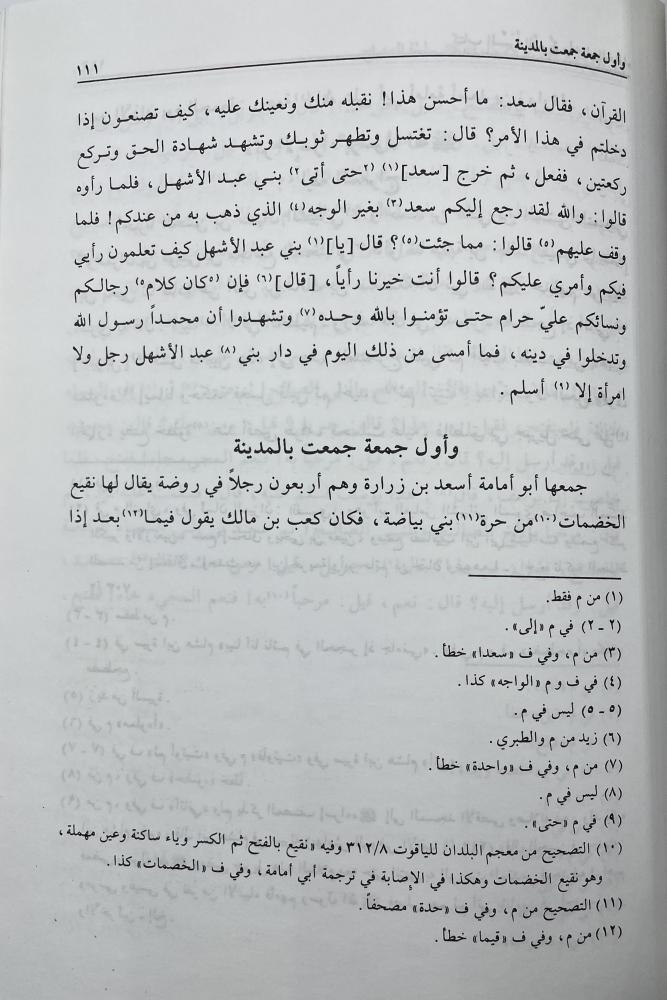 وأول جمعة جمعت بالمدينة
١١١
القرآن، فقال سعد: ما أحسن هذا! نقبله منك ونعينك عليه، كيف تصنعون إذا
دخلتم في هذا الأمر؟ قال: تغتسل وتطهر ثوبك وتشهد شهادة الحق وتركع
ركعتين، ففعل، ثم خرج [سعد](١) (٢حتى أتى٢) بني عبد الأشهل، فلما رأوه
قالوا: والله لقد رجع إليكم سعد(٣) بغير الوجه(٤) الذي ذهب به من عندكم! فلما
وقف عليهم(٥) قالوا: مما جئت(٥)؟ قال [يا](١) بني عبد الأشهل كيف تعلمون رأيي
فيكم وأمري عليكم؟ قالوا أنت خيرنا رأياً، [قال](٦) فإن (٥كان كلام٥) رجالكم
ونسائكم عليّ حرام حتى تؤمنوا بالله وحده(٧) وتشهدوا أن محمداً رسول الله
وتدخلوا في دينه، فما أمسى من ذلك اليوم في دار بني(٨) عبد الأشهل رجل ولا
امرأة إلا(٩) أسلم.
وأول جمعة جمعت بالمدينة
جمعها أبو أمامة أسعد بن زرارة وهم أربعون رجلاً في روضة يقال لها نقيع
الخضمات(١٠)من حرة(١١)بني بياضة، فكان كعب بن مالك يقول فيما(١٢)بعد إذا
(١) من م فقط.
(٢ - ٢) في م «إلى».
(٣) من م، وفي ف «سعدا» خطأ.
(٤) في ف و م «الواجه» كذا.
(٥ - ٥) ليس في م.
(٦) زيد من م والطبري.
(٧) من م، وفي ف «واحدة» خطأ.
(٨) ليس في م.
(٩) في م «حتى».
(١٠) التصحيح من معجم البلدان للياقوت ٣١٢/٨ وفيه «نقيع بالفتح ثم الكسر وياء ساكنة وعين مهملة،
وهو نقيع الخضمات وهكذا في الإصابة في ترجمة أبي أمامة، وفي ف «الخصمات» كذا.
(١١) التصحيح من م، وفي ف «حدة» مصحفاً.
(١٢) من م، وفي ف «قيما» خطأ.